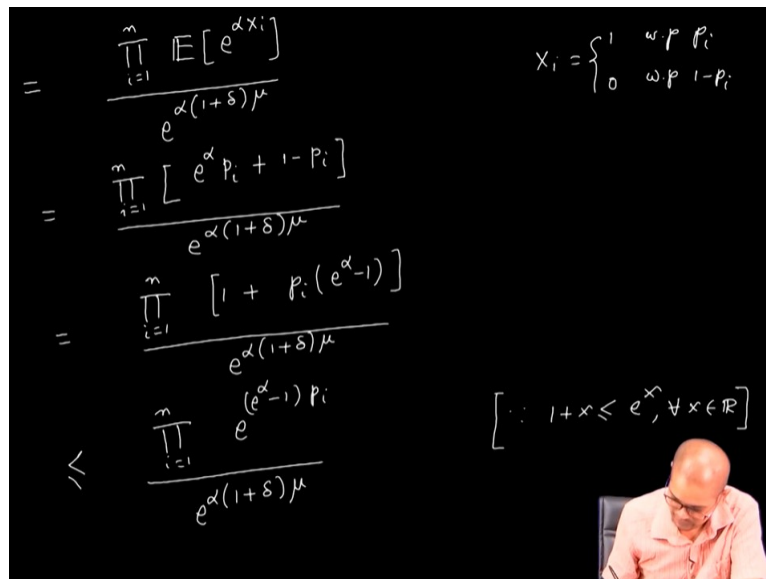 = ∏_{i=1}^{n} 𝔼[e^{αx_i}] / e^{α(1+δ)μ}
x_i = { 1 w.p p_i
0 w.p 1-p_i
= ∏_{i=1}^{n} [e^α p_i + 1-p_i] / e^{α(1+δ)μ}
= ∏_{i=1}^{n} [1 + p_i(e^α-1)] / e^{α(1+δ)μ}
≤ ∏_{i=1}^{n} e^{(e^α-1) p_i} / e^{α(1+δ)μ}
[∵ 1+x ≤ e^x, ∀ x ∈ ℝ]